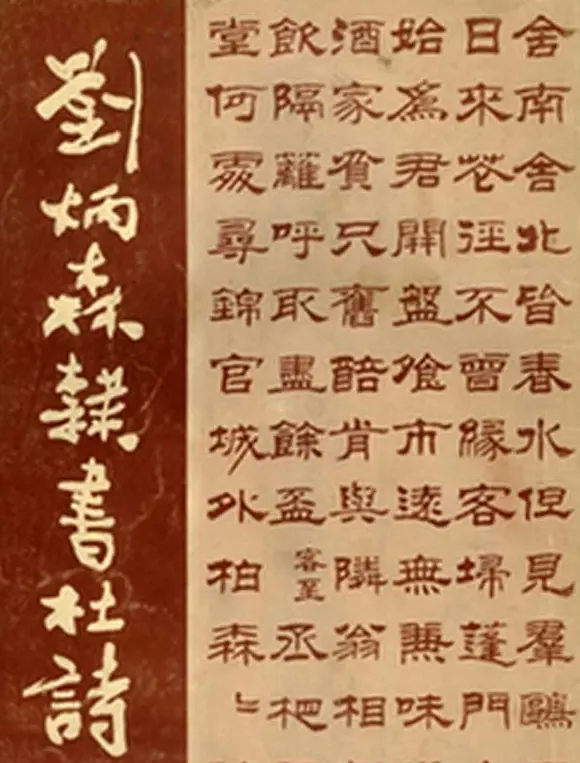 舍南舍北皆春水但見羣鷗
日來花徑不曾緣客埽蓬門
始為君開盤飧市遠無兼味
酒家貧只舊醅肯與隣翁相
飲隔籬呼取盡餘盃
客至
丞相
堂何處尋錦官城外柏森〻
劉炳森隸書杜詩